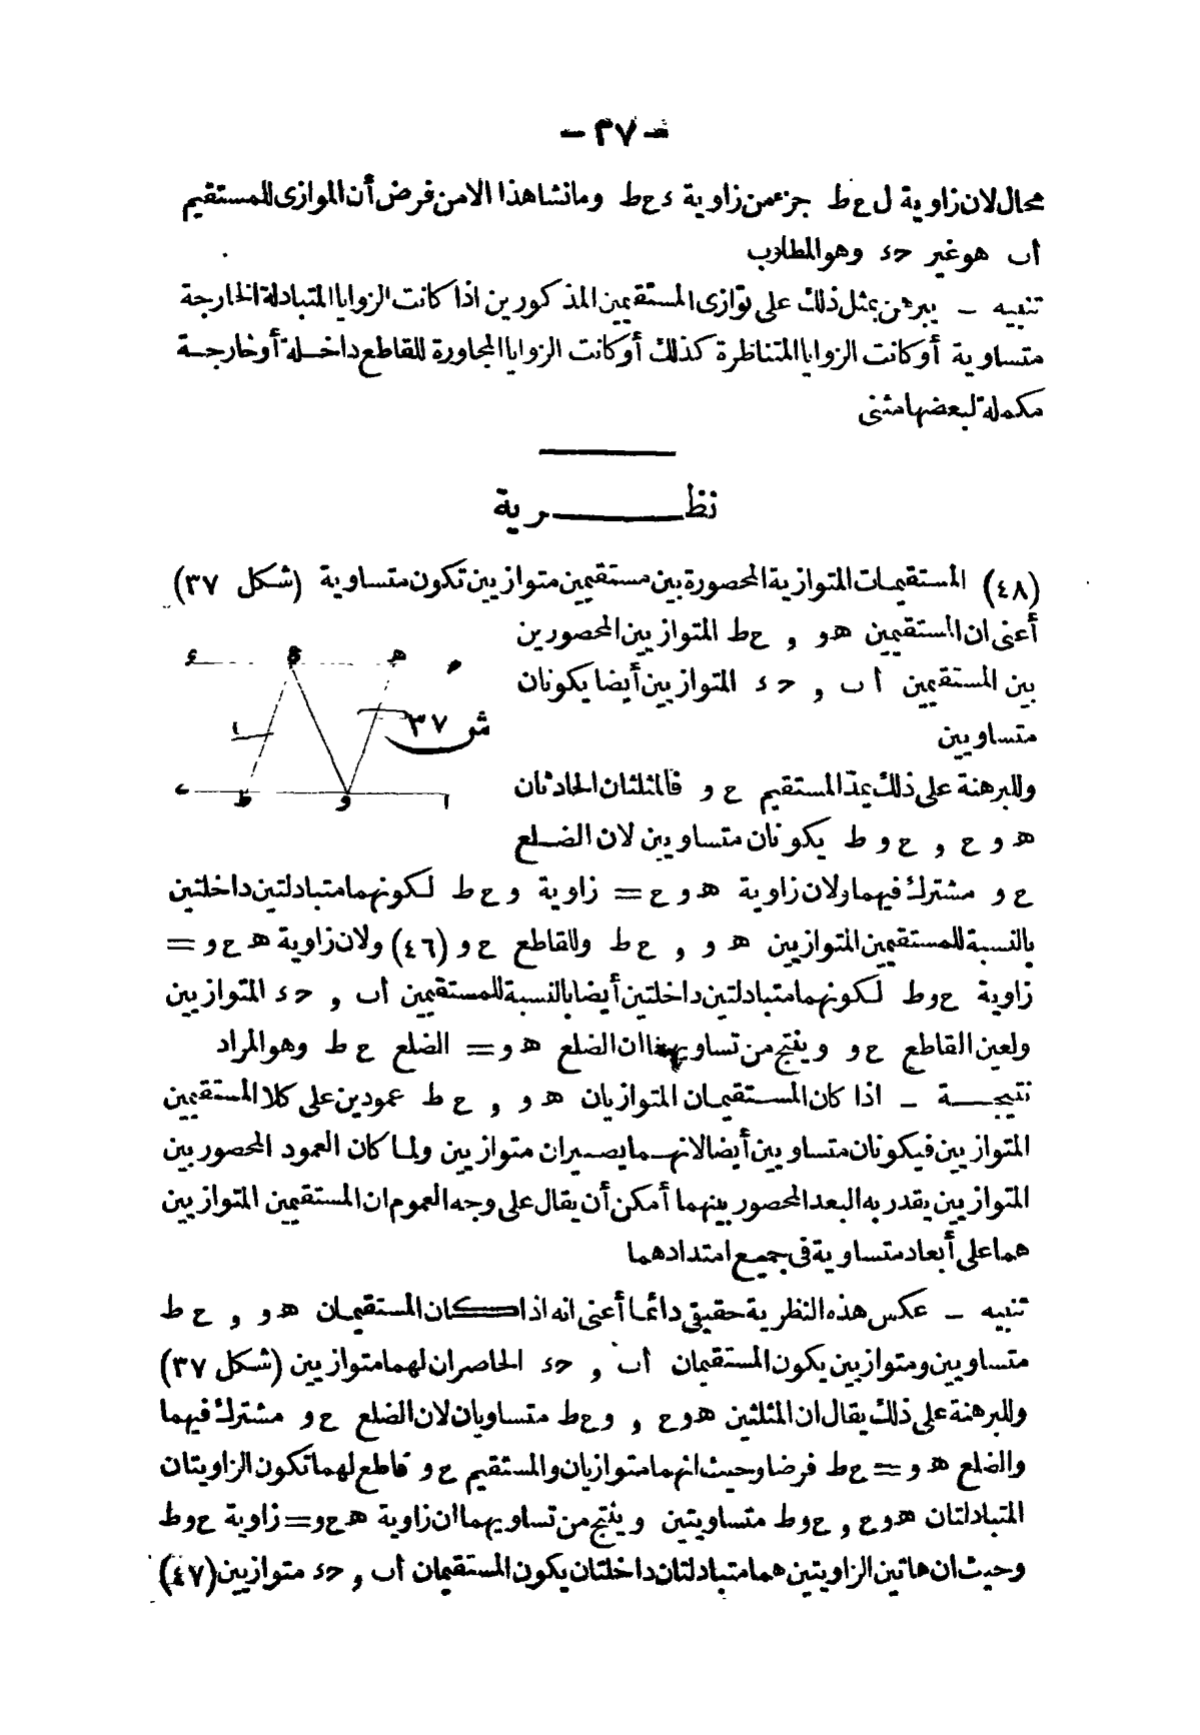 - ٣٧ -
محال لان زاوية ل ع ط جزء من زاوية ء ع ط وما نشا هذا الا من فرض أن الموازى للمستقيم
اب هو غير حء وهو المطلوب
تنبيه - يبرهن بمثل ذلك على توازى المستقيمين المذكورين اذا كانت الزوايا المتبادلة الخارجة
متساوية أو كانت الزوايا المتناظرة كذلك أو كانت الزوايا المجاورة للقاطع داخلة أو خارجة
مكملة لبعضها مثنى
نظرية
(٤٨) المستقيمات المتوازية المحصورة بين مستقيمين متوازيين تكون متساوية (شكل ٣٧)
أعنى ان المستقيمين هو , ع ط المتوازيين المحصورين
بين المستقيمين ا ب , ح ء المتوازيين أيضا يكونان
متساويين
وللبرهنة على ذلك يمد المستقيم ع و فالمثلثان الحادثان
ه و ع , ع و ط يكونان متساويين لان الضلع
ع و مشترك فيهما ولان زاوية ه و ع = زاوية و ع ط لكونهما متبادلتين داخلتين
بالنسبة للمستقيمين المتوازيين ه و , ع ط وللقاطع ع و (٤٦) ولان زاوية ه ع و =
زاوية ع و ط لكونهما متبادلتين داخلتين أيضا بالنسبة للمستقيمين اب , حء المتوازيين
ولعين القاطع ع و وينتج من تساويهما ان الضلع ه و = الضلع ع ط وهو المراد
نتيجة - اذا كان المستقيمان المتوازيان ه و , ع ط عمودين على كلا المستقيمين
المتوازيين فيكونان متساويين أيضا لانهما يصيران متوازيين ولما كان العمود المحصور بين
المتوازيين يقدر به البعد المحصور بينهما أمكن أن يقال على وجه العموم ان المستقيمين المتوازيين
هما على أبعاد متساوية فى جميع امتدادهما
تنبيه - عكس هذه النظرية حقيقى دائما أعنى انه اذا كان المستقيمان ه و , ع ط
متساويين ومتوازيين يكون المستقيمان اب , حء الحاصران لهما متوازيين (شكل ٣٧)
وللبرهنة على ذلك يقال ان المثلثين ه و ع , و ع ط متساويان لان الضلع ع و مشترك فيهما
والضلع ه و = ع ط فرضا وحيث انهما متوازيان والمستقيم ع و قاطع لهما تكون الزاويتان
المتبادلتان ه و ع , ع و ط متساويتين وينتج من تساويهما ان زاوية ه ع و = زاوية ع و ط
وحيث ان هاتين الزاويتين هما متبادلتان داخلتان يكون المستقيمان اب , حء متوازيين (٤٧)
ء ع ه ح
ش ٣٧
ب ط و ا